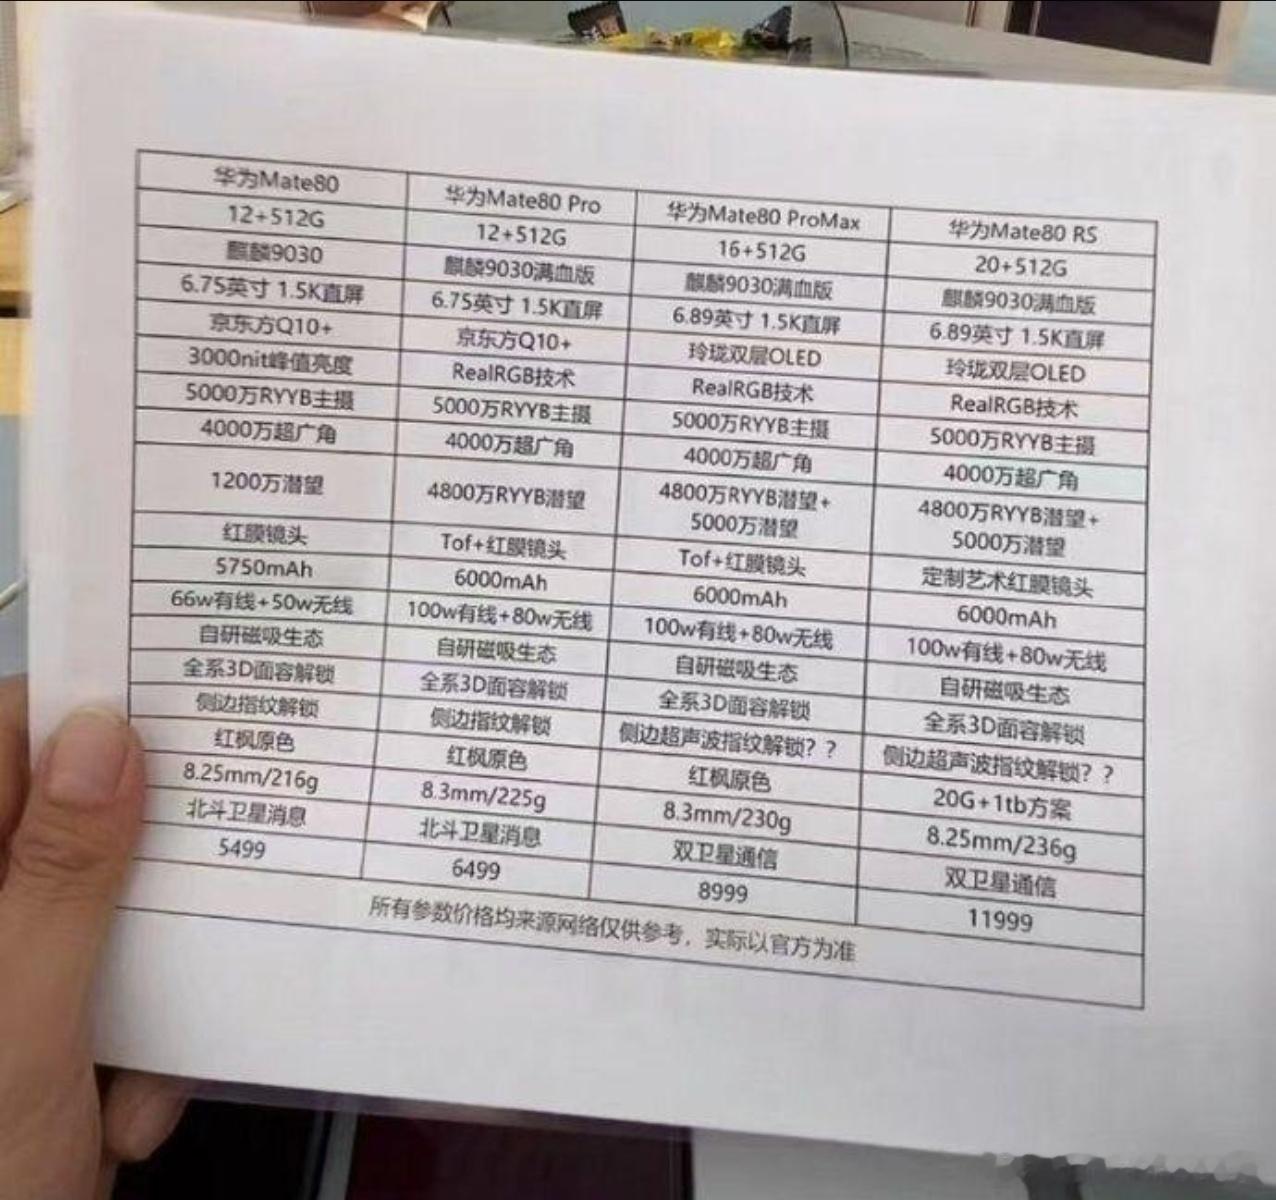 华为Mate80 华为Mate80 Pro 华为Mate80 ProMax 华为Mate80 RS
12+512G 12+512G 16+512G 20+512G
麒麟9030 麒麟9030满血版 麒麟9030满血版 麒麟9030满血版
6.75英寸 1.5K直屏 6.75英寸 1.5K直屏 6.89英寸 1.5K直屏 6.89英寸 1.5K直屏
京东方Q10+ 京东方Q10+ 玲珑双层OLED 玲珑双层OLED
3000nit峰值亮度 RealRGB技术 RealRGB技术 RealRGB技术
5000万RYYB主摄 5000万RYYB主摄 5000万RYYB主摄 5000万RYYB主摄
4000万超广角 4000万超广角 4000万超广角 4000万超广角
1200万潜望 4800万RYYB潜望 4800万RYYB潜望+ 4800万RYYB潜望+
5000万潜望 5000万潜望
红膜镜头 Tof+红膜镜头 Tof+红膜镜头 定制艺术红膜镜头
5750mAh 6000mAh 6000mAh 6000mAh
66w有线+50w无线 100w有线+80w无线 100w有线+80w无线 100w有线+80w无线
自研磁吸生态 自研磁吸生态 自研磁吸生态 自研磁吸生态
全系3D面容解锁 全系3D面容解锁 全系3D面容解锁 全系3D面容解锁
侧边指纹解锁 侧边指纹解锁 侧边超声波指纹解锁？？ 侧边超声波指纹解锁？？
红枫原色 红枫原色 红枫原色 20G+1tb方案
8.25mm/216g 8.3mm/225g 8.3mm/230g 8.25mm/236g
北斗卫星消息 北斗卫星消息 双卫星通信 双卫星通信
5499 6499 8999 11999
所有参数价格均来源网络仅供参考，实际以官方为准